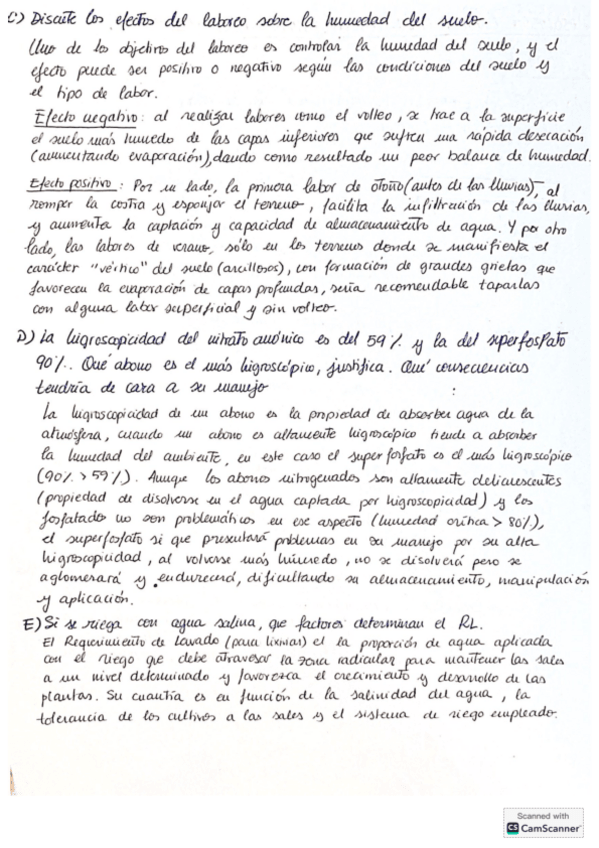 C) Discute los efectos del laboreo sobre la humedad del suelo.
Uno de los objetivos del laboreo es controlar la humedad del suelo, y el
efecto puede ser positivo o negativo según las condiciones del suelo y
el tipo de labor.
Efecto negativo: al realizar labores como el volteo, se trae a la superficie
el suelo más humedo de las capas inferiores que sufren una rápida desecación
(aumentando evaporación), dando como resultado un peor balance de humedad.
Efecto positivo: Por un lado, la primera labor de otoño (antes de las lluvias), al
romper la costra y esponjar el terreno, facilita la infiltración de las lluvias,
y aumenta la captación y capacidad de almacenamiento de agua. Y por otro
lado, las labores de verano, sólo en los terrenos donde se manifiesta el
carácter "vértico" del suelo (arcillosos), con formación de grandes grietas que
favorecen la evaporación de capas profundas, sería recomendable taparlas
con alguna labor superficial y sin volteo.
D) La higroscopicidad del nitrato amónico es del 59% y la del superfosfato
90%. Qué abono es el más higroscópico, justifica. Qué consecuencias
tendría de cara a su manejo :
La higroscopicidad de un abono es la propiedad de absorber agua de la
atmósfera, cuando un abono es altamente higroscópico tiende a absorber
la humedad del ambiente, en este caso el superfosfato es el más higroscópico
(90% > 59%). Aunque los abonos nitrogenados son altamente delicuescentes
(propiedad de disolverse en el agua captada por higroscopicidad) y los
fosfatado no son problemáticos en ese aspecto (humedad crítica > 80%),
el superfosfato si que presentará problemas en su manejo por su alta
higroscopicidad, al volverse más húmedo, no se disolverá pero se
aglomerará y endurecerá, dificultando su almacenamiento, manipulación
y aplicación.
E) Si se riega con agua salina, que factores determinan el RL.
El Requerimiento de Lavado (para lixiviar) el la proporción de agua aplicada
con el riego que debe atravesar la zona radicular para mantener las sales
a un nivel determinado y favorezca el crecimiento y desarrollo de las
plantas. Su cuantía es en función de la salinidad del agua, la
tolerancia de los cultivos a las sales y el sistema de riego empleado.
Scanned with
CS CamScanner